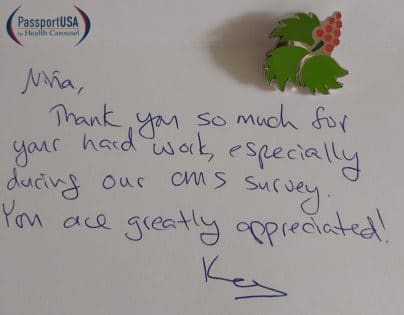 PassportUSA
by Health Carousel
Niña,
Thank you so much for
your hard work, especially
during our CMS survey.
You are greatly appreciated!